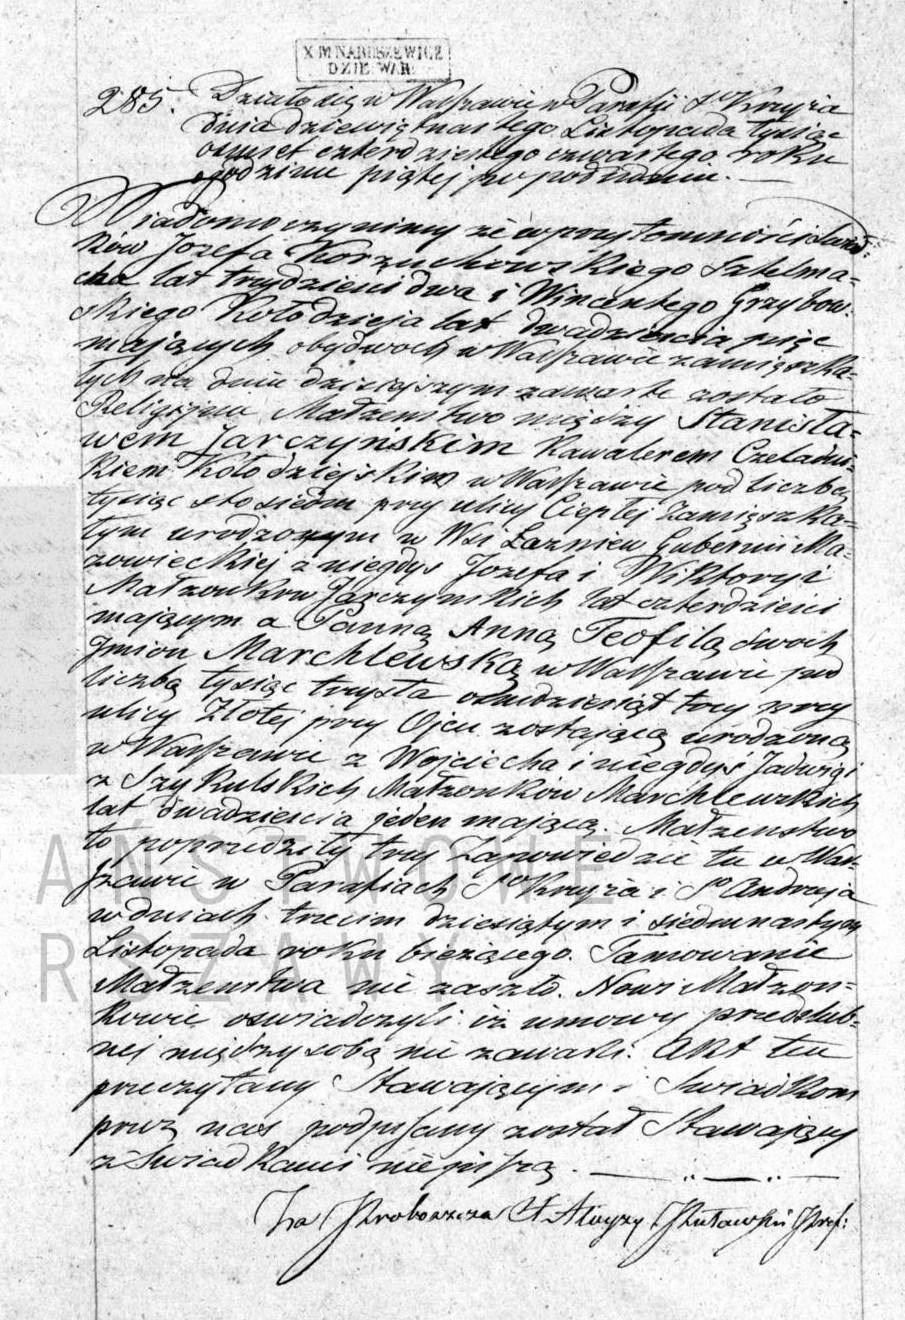 X M NARUSZEWICZ
DZIE: WAR:
285. Działo się w Warszawie w Parafii Sgo Krzyża
dnia dziewiętnastego Listopada tysiąc
ośmset czterdziestego czwartego roku
o godzinie piątej po południu. —
Wiadomo czynimy że w przytomności świad=
ków Jozefa Korzuchowskiego Sztelma=
cha lat trydzieści dwa i Wincentego Grzybow=
skiego Kołodzieja lat dwadzieścia pięć
mających obydwoch w Warszawie zamieszka=
łych na dniu dzisiejszym zawarte zostało
Religijne Małżenstwo między Stanisła=
wem Jarczyńskim Kawalerem Czeladni=
kiem Kołodziejskim w Warszawie pod liczbą
tysiąc sto siedm przy ulicy Ciepłej zamieszka=
łym urodzonym w Wsi Łazniew Gubernii Ma=
zowieckiej z niegdys Jozefa i Wiktoryi
Małżonkow Jarczynskich lat czterdzieści
mającym a Panną Anną Teofilą dwoch
Jmion Marchlewską w Warszawie pod
liczbą tysiąc trzysta ośmdziesiąt trzy przy
ulicy Złotej przy Ojcu zostającą urodzoną
w Warszawie z Wojciecha i niegdyś Jadwigi
z Szykulskich Małżonków Marchlewskich
lat dwadzieścia jeden mającą. Małżenstwo
to poprzedziły trzy Zapowiedzie tu w War=
szawie w Parafiach Sgo Krzyża i Sgo Andrzeja
w dniach trzecim dziesiątym i siedmnastym
Listopada roku bieżącego. Tamowanie
Małżenstwa nie zaszło. Nowi Małżon=
kowie oświadczyli iż umowy przedślub=
nej między sobą nie zawarli. Akt ten
przeczytany Stawającym i Swiadkom
przez nas podpisany został Stawający
z Swiadkami nie piszą. —
Za Proboszcza X Aloyzy Pref:
PAŃSTWOWE
RSZAWY